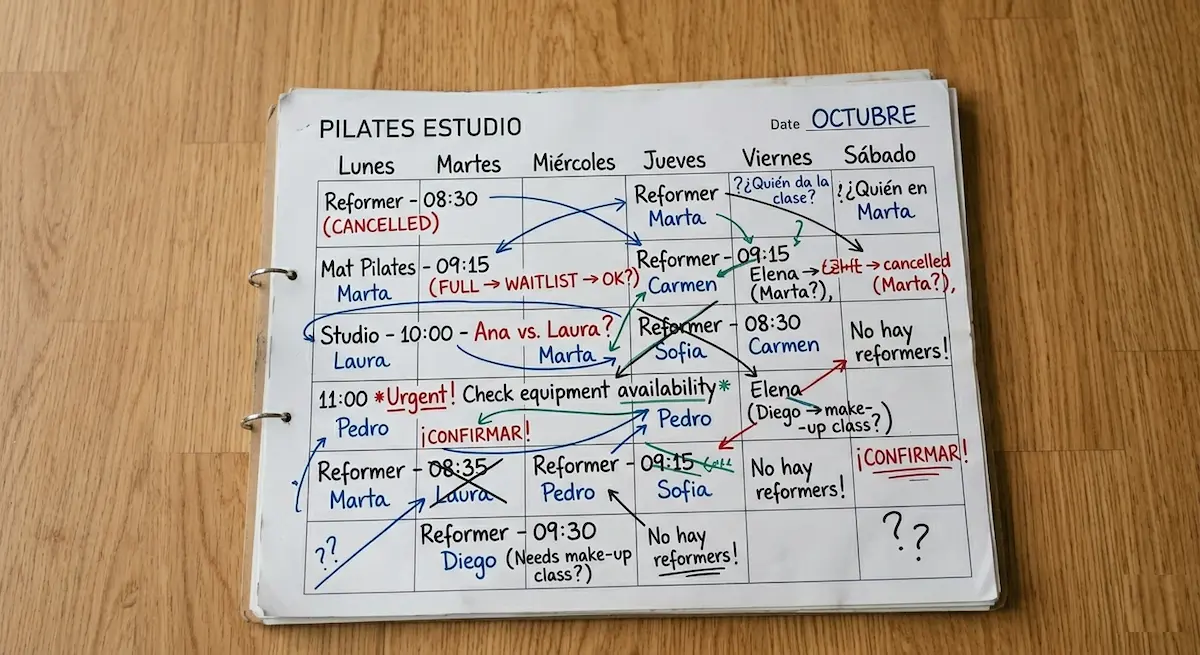 PILATES ESTUDIO
Date OCTUBRE
Lunes Martes Miércoles Jueves Viernes Sábado
Reformer - 08:30
(CANCELLED)
Reformer
Marta
?¿Quién da la
clase?
?
!¿Quién en
Marta
Mat Pilates - 09:15
Marta
(FULL → WAITLIST → OK?)
Reformer - 09:15
Carmen
Elena →
(Marta?),
→ cancelled
(Marta?),
Studio - 10:00 - Ana vs. Laura?
Laura
Marta
Reformer - 08:30
Sofia
Carmen
No hay
reformers!
11:00 *Urgent! Check equipment availability*
Pedro
¡CONFIRMAR!
Pedro
Elena
(Diego → make-
-up class?)
Reformer - 08:35
Marta
Laura
Reformer - 09:15
Pedro
Sofia
No hay
reformers!
¡CONFIRMAR!
??
Reformer - 09:30
Diego (Needs make-up
class?)
No hay
reformers!
??